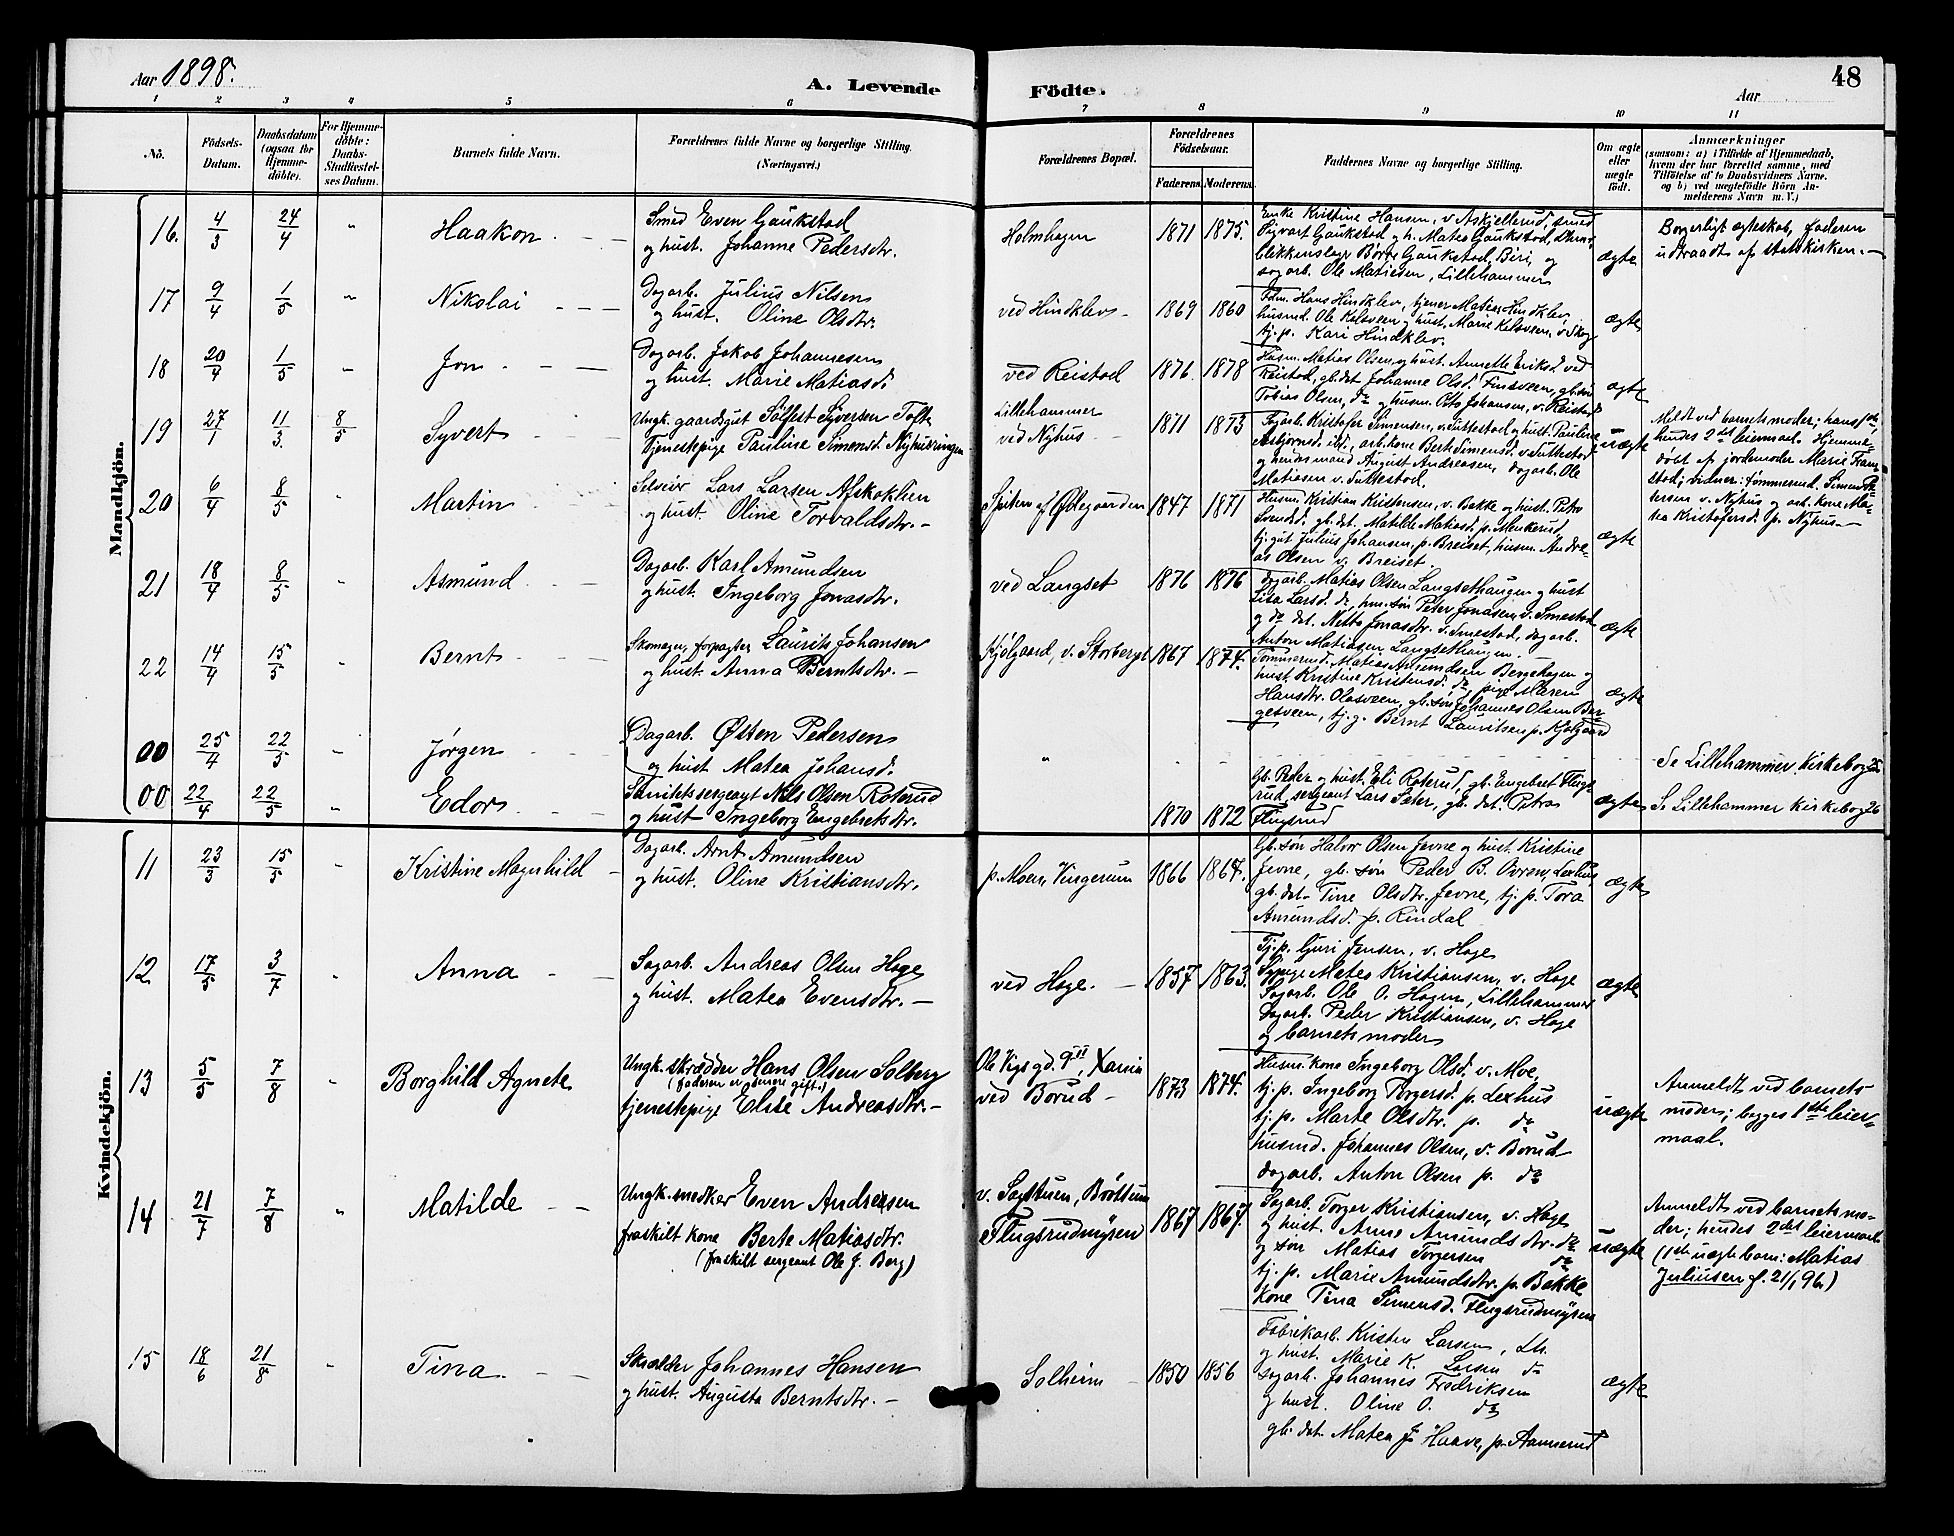 Aar 1898.
A. Levende
Födte.
Aar
48
1 2 3 4 5 6 7 8 9 10 11
No.
Födsels-
Datum.
Daabsdatum
(ogsaa for
Hjemme-
döbte).
For Hjemme-
döbte:
Daabs-
Stadfæstel-
ses Datum.
Barnets fulde Navn.
Forældrenes fulde Navne og borgerlige Stilling.
(Næringsvei.)
Forældrenes Bopæl.
Forældrenes
Födselsaar.
Faderens. Moderens.
Faddernes Navne og borgerlige Stilling.
Om ægte
eller
uægte
födt.
Anmærkninger
(saasom: a) i Tilfælde af Hjemmedaab,
hvem der har forrettet samme, med
Tilföielse af to Daabsvidners Navne,
og b) ved uægtefödte Börn An-
melderens Navn m. V.)
Mandkjön.
16. 4/3 24/4 " Haakon.
Smed Even Gaukstad
og hust. Johanne Pedersdtr.
Holmhagen 1871 1875.
Enke Kristine Hansen, v. Askjellerud, smed
Sigvart Gaukstad og h. Matea Gaukstad,
blikkenslager Børre Gaukstad, Biri, og
sagarb. Ole Matiesen, Lillehammer
ægte
Borgerligt ægteskab, faderen
udtraadt af statskirken.
17 9/4 1/5 " Nikolai
Dagarb. Julius Nilsen
og hust. Oline Olsdtr.
ved Hindklev 1869 1860
Fdm. Hans Hindklev, tjener Matias Hindklev,
husmd. Ole Kalveen og hust. Marie Kalveen, v. Skog
tj.p. Kari Hindklev.
ægte
18 20/4 1/5 " Jon
Dagarb. Jakob Johannesen
og hust. Marie Matiasd.
ved Reistad 1876 1878
Husm. Matias Olsen og hust. Annette Eriksd. ved
Reistad, gb.det. Johanne Olsd. Finsveen, gb.søn
Tobias Olsen, do og husm. Otto Johansen, v. Reistad
ægte
19 27/1 11/3 8/5 Syvert
Ungk. gaardsgut Søffest Sivertsen Tofte
Tjenestepige Pauline Simensd. Nyhusringen
Lillehammer
ved Nyhus 1871 1873
Dagarb. Kristofer Simensen, v. Suttestad og hust. Pauline
Asbjørnsd. ibd., arb.kone Berte Simensd. v. Suttestad
og hendes mand August Andreasen, dagarb. Ole
Matiasen v. Suttestad.
uægte
Meldt ved barnets moder; hans 1ste,
hendes 2det leiermaal. Hjemme-
døbt af jordemoder Marie Fram-
stad; vidner: tømmermd. Simen Pe-
tersen v. Nyhus og arb. kone Ma-
tea Kristofersd. p. Nyhus.
20 6/4 8/5 " Martin
Selveier Lars Larsen Afskoklien
og hust. Oline Torvaldsdtr.
af Østegaarden 1847 1871
Husm. Kristian Kristensen, v. Bakke og hust. Petra
Svendsd., gb.det. Matilde Matiasd. p. Menkerud,
tj.gut Julius Johansen, p. Breiset, husm. Andre-
as Olsen v. Breiset.
ægte
21 18/4 8/5 " Asmund
Dagarb. Karl Amundsen
og hust. Ingeborg Jonasdtr.
ved Langset 1876 1876
Dagarb. Matias Olsen Langsethaugen og hust.
Lisa Larsd. do, hm. søn Peter Jonasen, v. Smestad
og do det. Netta Jonasdtr. v. Smestad, dagarb.
Anton Matiasen Langsethaugen.
ægte
22 14/4 15/5 " Bernt
Skomager, forpagter Laurits Johansen
og hust. Anna Berntsdtr.
Kjølgaard, v. Storberget 1867 1874.
Tømmermd. Matias Amundsen Bergehagen og
hust. Kristine Kristensd. do, pige Maren
Hansdtr. Olasveen, gb.søn Johannes Olsen Ber-
gesveen, tj.g. Bernt Lauritsen p. Kjølgaard
ægte
00 25/4 22/5 " Jørgen
Dagarb. Østen Pedersen
og hust Matea Johansd.
"
Se Lillehammer Kirkebog 25
00 22/4 22/5 " Edor
Sanitetssergeant Nils Olsen Roterud
og hust Ingeborg Engebretsdtr.
1870 1872
Gb. Peder og hust. Eli Roterud, gb. Engebret Flugs-
rud, sergeant Lars Sæter, gb. det. Petra
Flugsrud
ægte
Se Lillehammer Kirkebog 26
Kvindekjön.
11 23/3 15/5 " Kristine Magnhild
Dagarb. Arnt Amundsen
og hust. Oline Kristiansdtr.
p. Moen, Vingerum 1866 1867.
Gb.søn Halvor Olsen Jevne og hust. Kristine
Jevne, gb. søn Peder B. Øvren, Lexhus
gb. det. Tine Olsdtr. Jevne, tj. p. Tora
Amundsd. p. Rindal
ægte
12 17/5 3/7 " Anna
Sagarb. Andreas Olsen Hage
og hust. Matea Evensdtr.
ved Hage. 1857 1863.
Tj.p. Guri Jensen, v. Hage
Sypige Matea Kristiansen, v. Hage
Sagarb. Ole O. Hagen, Lillehammer
Dagarb. Peder Kristiansen, v. Hage
og barnets moder
ægte
13 5/5 7/8 " Borghild Agnete
Ungk. skrædder Hans Olsen Solberg
(faderen er senere gift.)
tjenestepige Elise Andreasdtr.
Ole Vigs gd. 9 III, Xania
ved Borud 1873 1874.
Husm. kone Ingeborg Olsd. v. Moe,
tj. p. Ingeborg Torgersd. p. Lexhus
tj. p. Marte Olsdtr. p. do
husmd. Johannes Olsen, v. Borud
dagarb. Anton Olsen p. do
uægte
Anmeldt ved barnets
moder; begges 1ste leier-
maal.
14 21/7 7/8 " Matilde
Ungk. snedker Even Andreasen
fraskilt kone Berte Matiasdtr.
(fraskilt sergeant Ole J. Berg)
v. Sagstuen, Brøttum
Flugsrudmyren 1867 1867.
Sagarb. Torger Kristiansen, v. Hage
og hust. Anne Amundsdtr. do
og søn Matias Torgersen do
tj. p. Marie Amundsdtr. p. Bakke
Kone Tina Simensd. Flugsrudmyren
uægte
Anmeldt ved barnets mo-
der; hendes 2det leiermaal
(1ste uægte barn: Matias
Juliusen f. 21/1 96.)
15 18/6 21/8 " Tina
Skrædder Johannes Hansen
og hust. Augusta Berntsdtr.
Solheim 1850 1856
Fabrikarb. Kristen Larsen, Lh.
og hust. Marie K. Larsen do
Sagarb. Johannes Fredriksen
og hust. Oline O. do
gb. det. Matea J. Haave, p. Aannerud
ægte